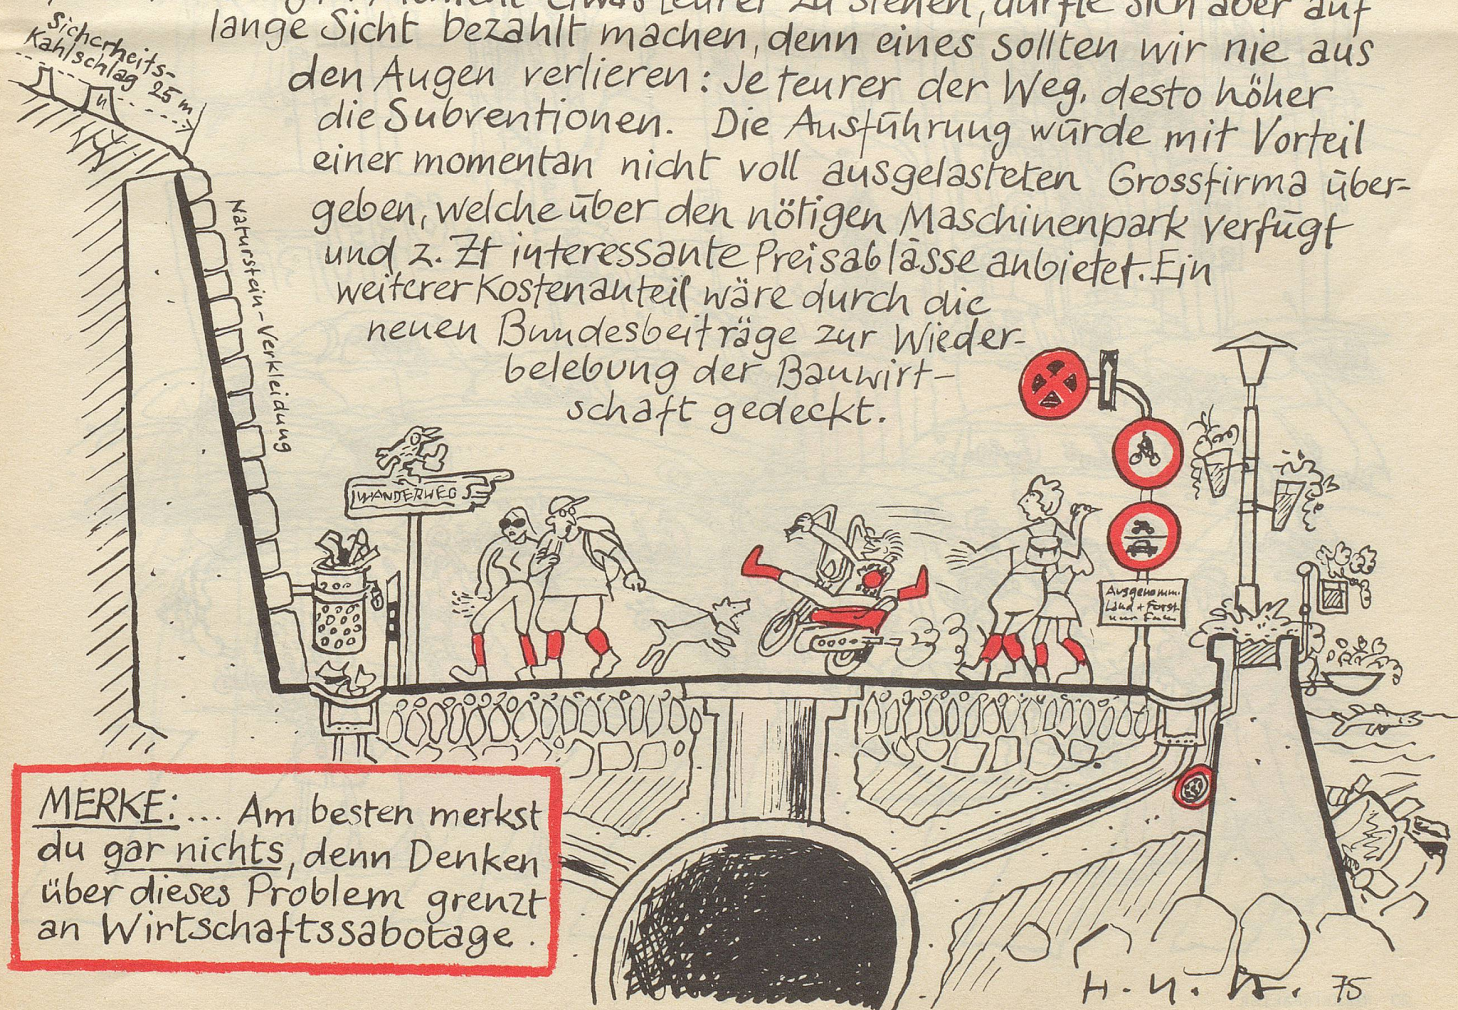 etwas teurer zu stehen, dürfte sich aber auf
lange Sicht bezahlt machen, denn eines sollten wir nie aus
den Augen verlieren: Je teurer der Weg, desto höher
die Subventionen. Die Ausführung würde mit Vorteil
einer momentan nicht voll ausgelasteten Grossfirma über-
geben, welche über den nötigen Maschinenpark verfügt
und z. Zt interessante Preisablässe anbietet. Ein
weiterer Kostenanteil wäre durch die
neuen Bundesbeiträge zur Wieder-
belebung der Bauwirt-
schaft gedeckt.
Sicherheits-
Kahlschlag 25 m
Naturstein-Verkleidung
WANDERWEG
Ausgenomm.
Land + Forst
MERKE: ... Am besten merkst
du gar nichts, denn Denken
über dieses Problem grenzt
an Wirtschaftssabotage.
75